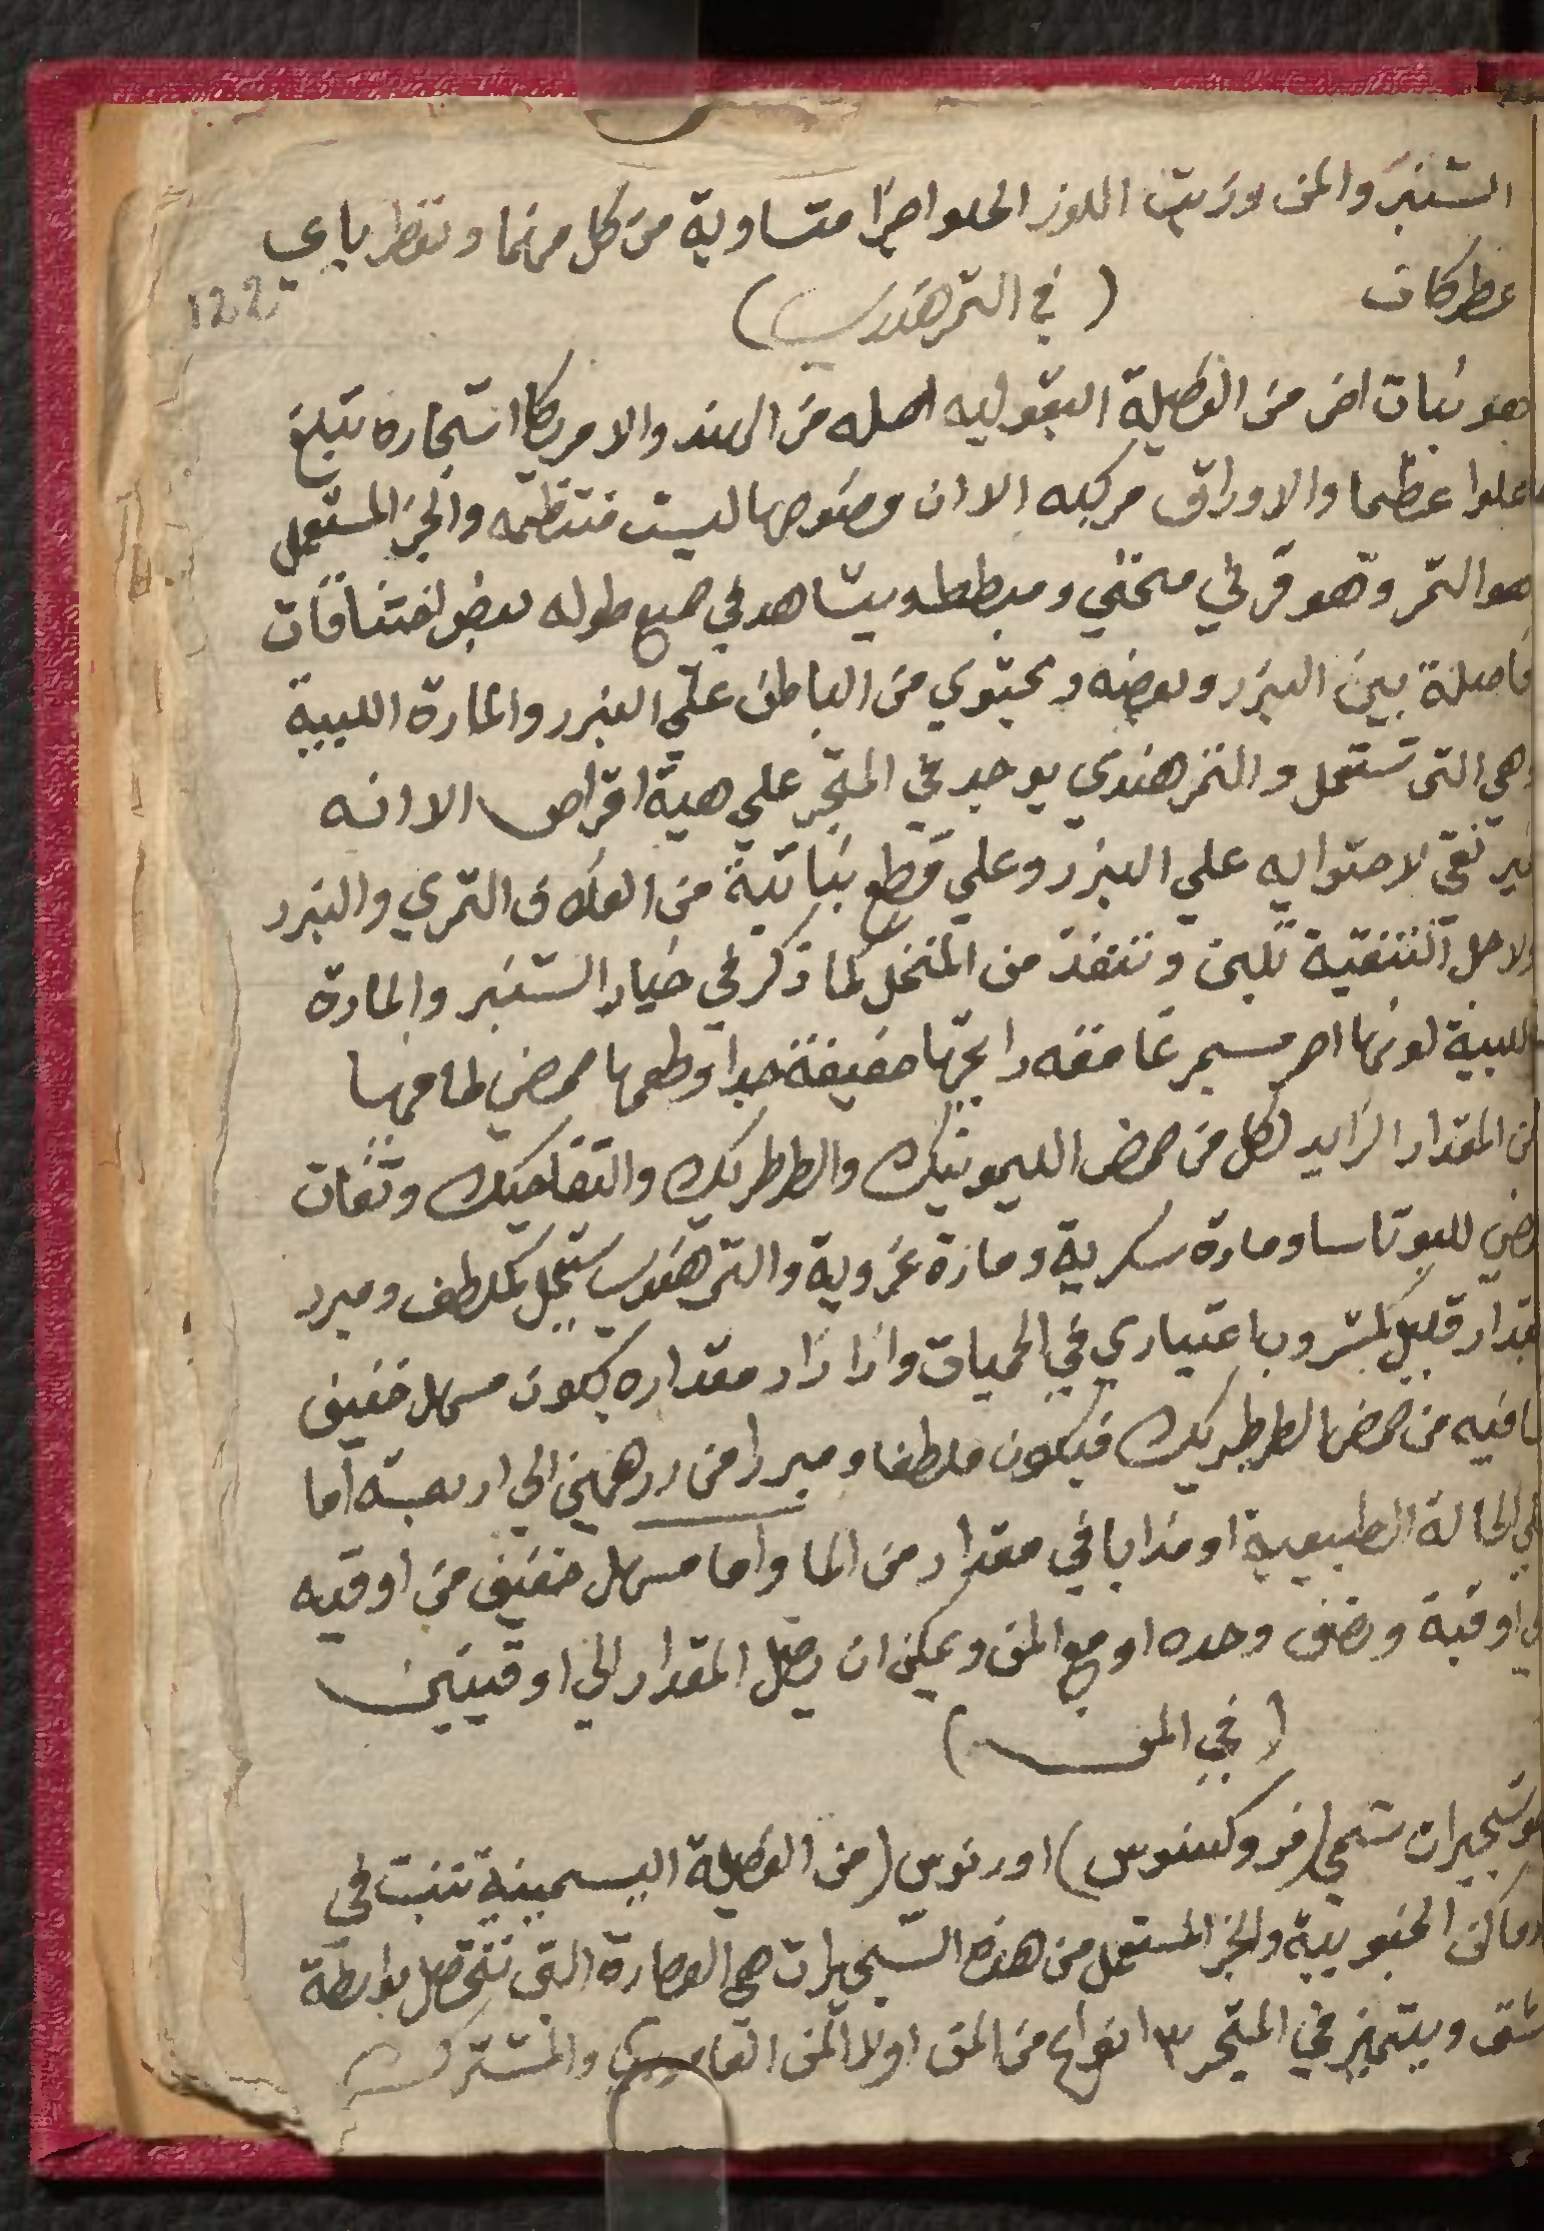 الشنبر والمن وزيت اللوز الحلو اجزا متساوية من كل منها وتعطر باي
عطر كان
(في التمر هندي)
122
هو نبات اخر من الفصيلة البقوليه اصله من الهند والامريكا اشجاره تبلغ
علوا عظيما والاوراق مركبه الا ان فصوصها ليست منتظمه والجز المستعمل
هو الثمر وهو قرني منحني ومبطط ويشاهد في جميع طوله بعض اختناقات
فاصلة بين البزر وبعضه ويحتوي من الباطن علي البزر والمادة اللبية
وهي التي تستعمل والتمر هندي يوجد في المتجر علي هية اقراص الا انه
غير نقي لاحتوايه علي البزر وعلي قطع نباتية من الغلاف الثمري والبزر
ولاجل التنقية تلين وتنفذ من المنخل كما ذكر في خيار الشنبر والمادة
اللبية لونها احمر مسمر غامقه رايحتها خفيفة جدا وطعمها حمضي لما فيها
من المقدار الزايد لكل من حمض الليمونيك والطرطريك والتفاحيك
للبوتاسا ومادة سكرية ومادة غروية والتمر هندي يستعمل كملطف ومبرد
بمقدار قليل كمشروب اعتيادي في الحميات واذا زاد مقداره يكون مسهل خفيف
لما فيه من حمض الطرطريك فيكون ملطفا ومبردا من درهمين الي اربعة اما
في الحالة الطبيعية او مذابا في مقدار من الما واما مسهل خفيف من اوقيه
الي اوقية ونصف وحده او مع المن ويمكن ان يصل المقدار الي اوقيتين
(في المن)
هو شجيرات تسمي (فروكسنوس) اورنوس (من الفصيلة اليسمينية تنبت في
الاماكن الجنوبية والجز المستعمل من هذه الشجيرات هي العصارة التي تتحصل بواسطة
شق ويتميز في المتجر ٣ انواع من المن اولا المن والمشترك